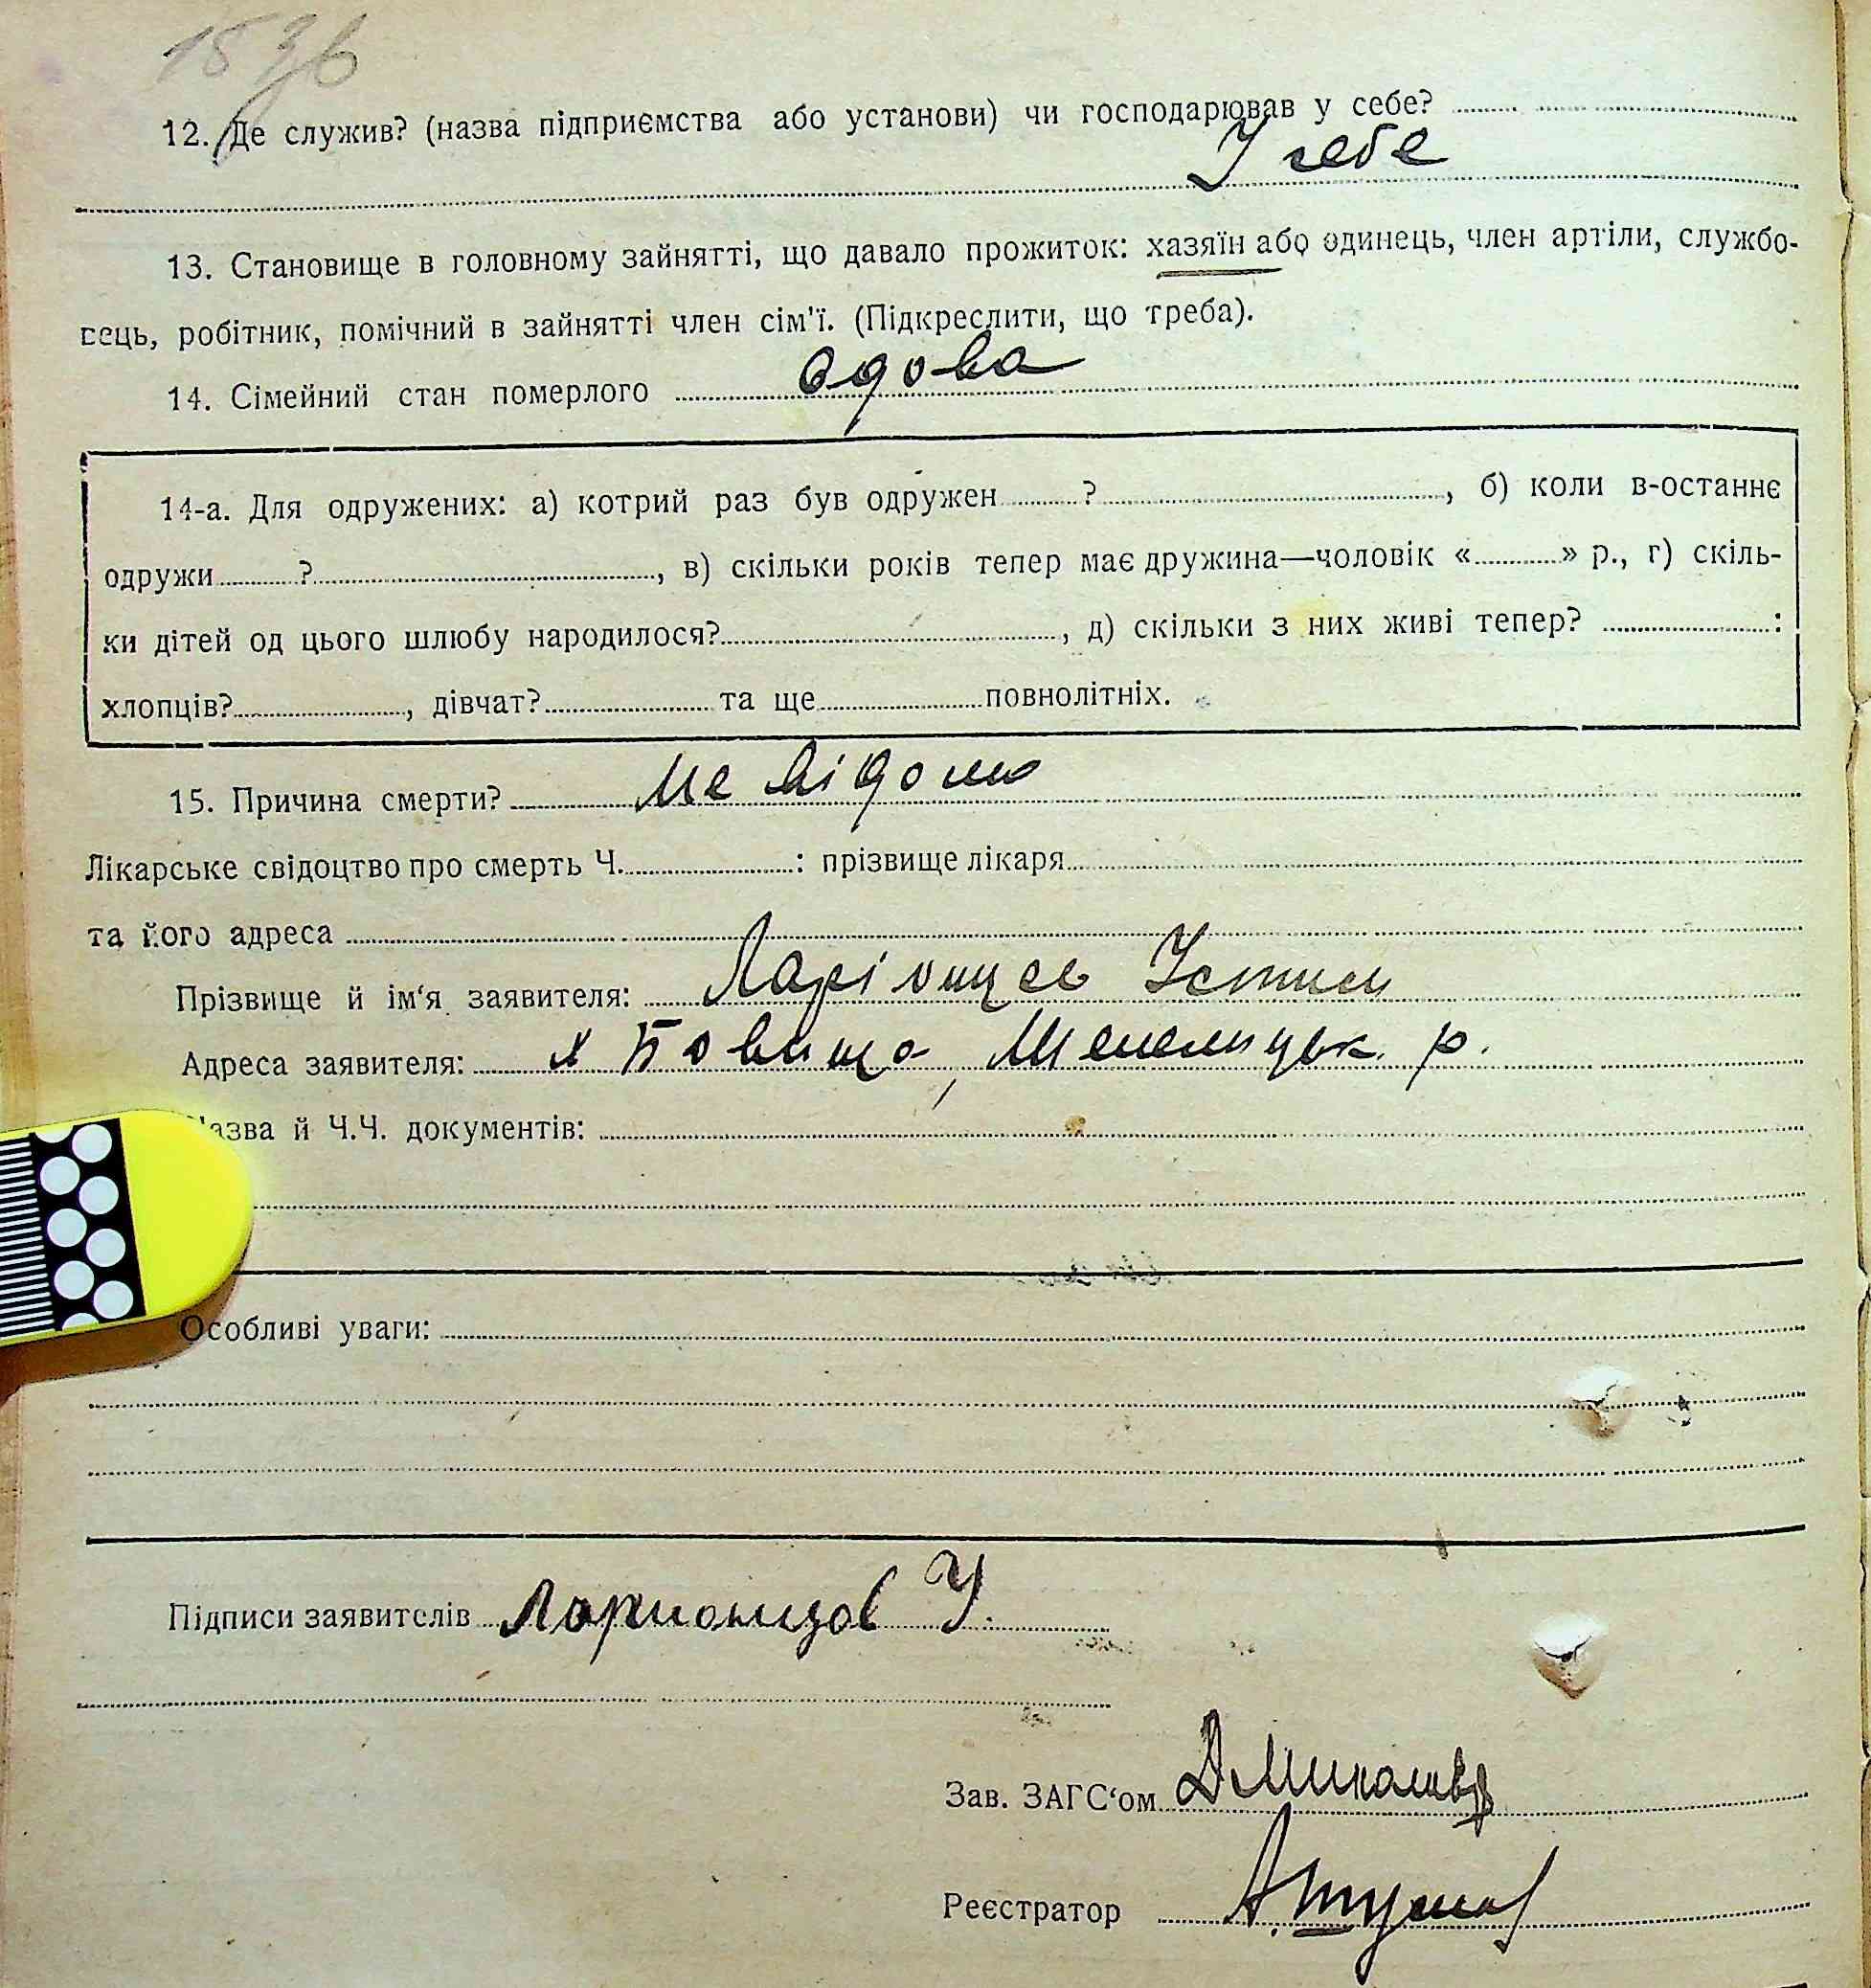 153б
12. Де служив? (назва підприємства або установи) чи господарював у себе?
У себе
13. Становище в головному зайнятті, що давало прожиток: хазяїн або одинець, член артіли, службо-
вець, робітник, помічний в зайнятті член сім'ї. (Підкреслити, що треба).
14. Сімейний стан померлого Вдова
14-а. Для одружених: а) котрий раз був одружен ? , б) коли в-останнє
одружи ? , в) скільки років тепер має дружина—чоловік « » р., г) скіль-
ки дітей од цього шлюбу народилося? , д) скільки з них живі тепер? :
хлопців? , дівчат? та ще повнолітніх.
15. Причина смерти? Не відомо
Лікарське свідоцтво про смерть Ч. : прізвище лікаря
та його адреса
Прізвище й ім'я заявителя: Ларіонцев Устин
Адреса заявителя: х Бовище, Шепелицьк. р.
Назва й Ч.Ч. документів:
Особливі уваги:
Підписи заявителів Ларионцов У.
Зав. ЗАГС'ом
Реєстратор